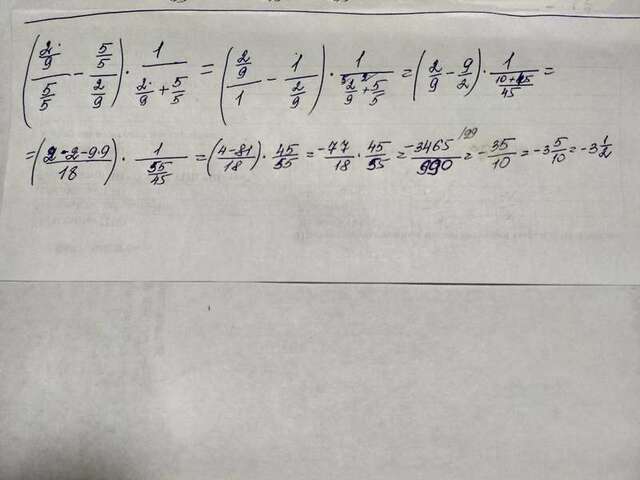 ((2/9)/(5/5) - (5/5)/(2/9)) · 1/(2/9 + 5/5) = ((2/9)/1 - 1/(2/9)) · 1/(2/9 + 5/5) = (2/9 - 9/2) · 1/((10+45)/45) =
= ((2·2-9·9)/18) · 1/(55/45) = ((4-81)/18) · 45/55 = -77/18 · 45/55 = -3465/990 /99 = -35/10 = -3 5/10 = -3 1/2